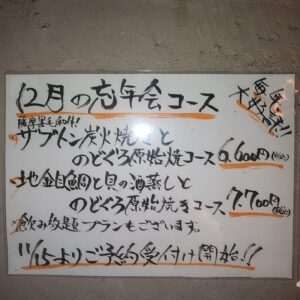 12月の忘年会コース
毎年大好評!!
薩摩黒毛和牛!
・ザブトン炭火焼きと
のどぐろ原始焼コース 6.600円(税込)
・地金目鯛と貝の酒蒸しと
のどぐろ原始焼きコース 7.700円(税込)
※飲み放題プランもございます。
11/15よりご予約受付け開始!!